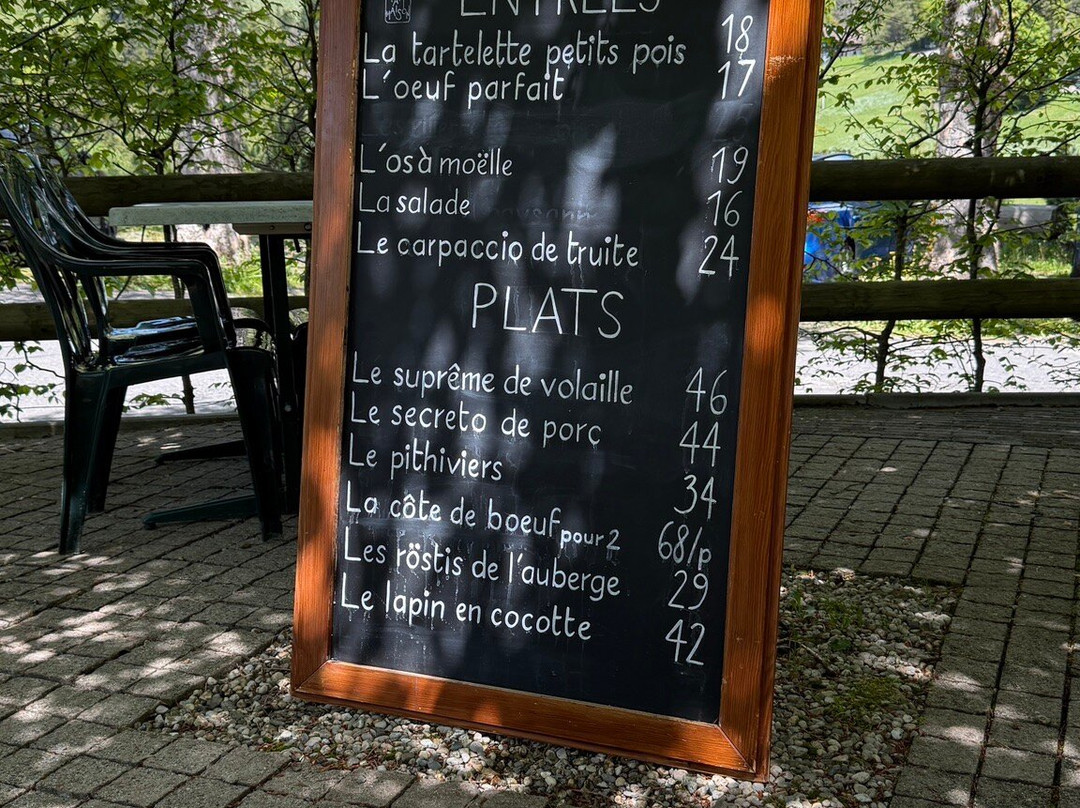 MAISON
ENTRÉES
La tartelette petits pois 18
L'oeuf parfait 17
L'os à moëlle 19
La salade 16
Le carpaccio de truite 24
PLATS
Le suprême de volaille 46
Le secreto de porc 44
Le pithiviers 34
La côte de boeuf pour 2 68/p
Les röstis de l'auberge 29
Le lapin en cocotte 42